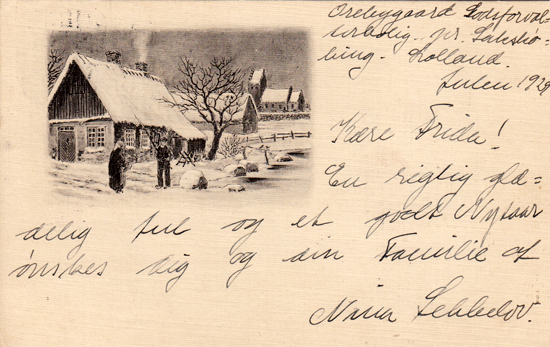 Orebygaard Godsforval-
terbolig. pr. Sakskø-
bing. Lolland.
Julen 192
Kære Frida!
En rigtig glæ-
delig Jul og et godt Nytaar
ønskes dig og din Familie af
Nina